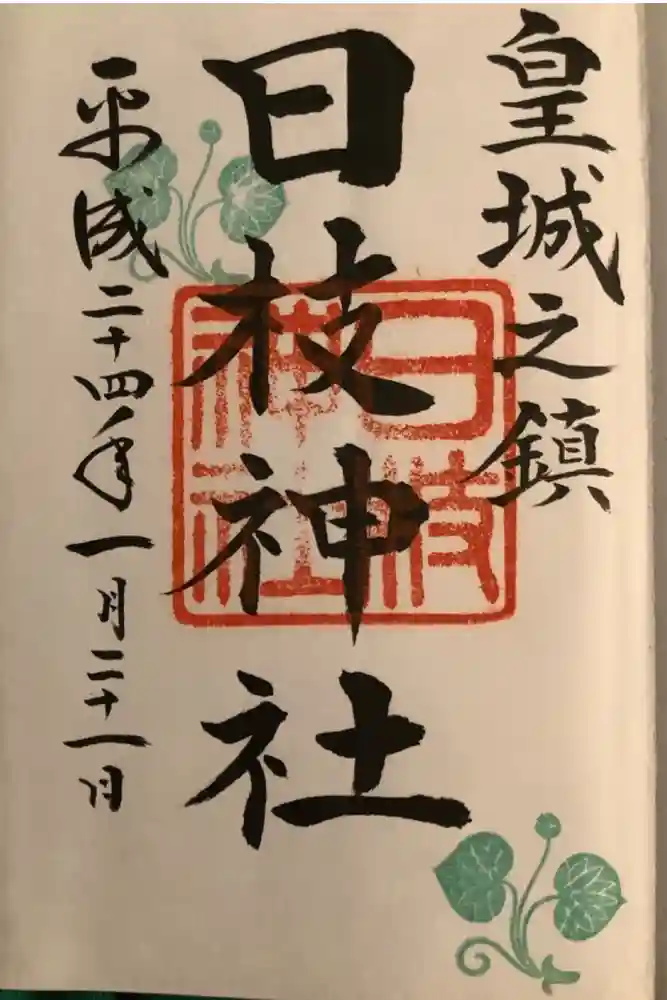 皇城之鎮
日枝神社
日枝神社
平成二十四年一月二十一日